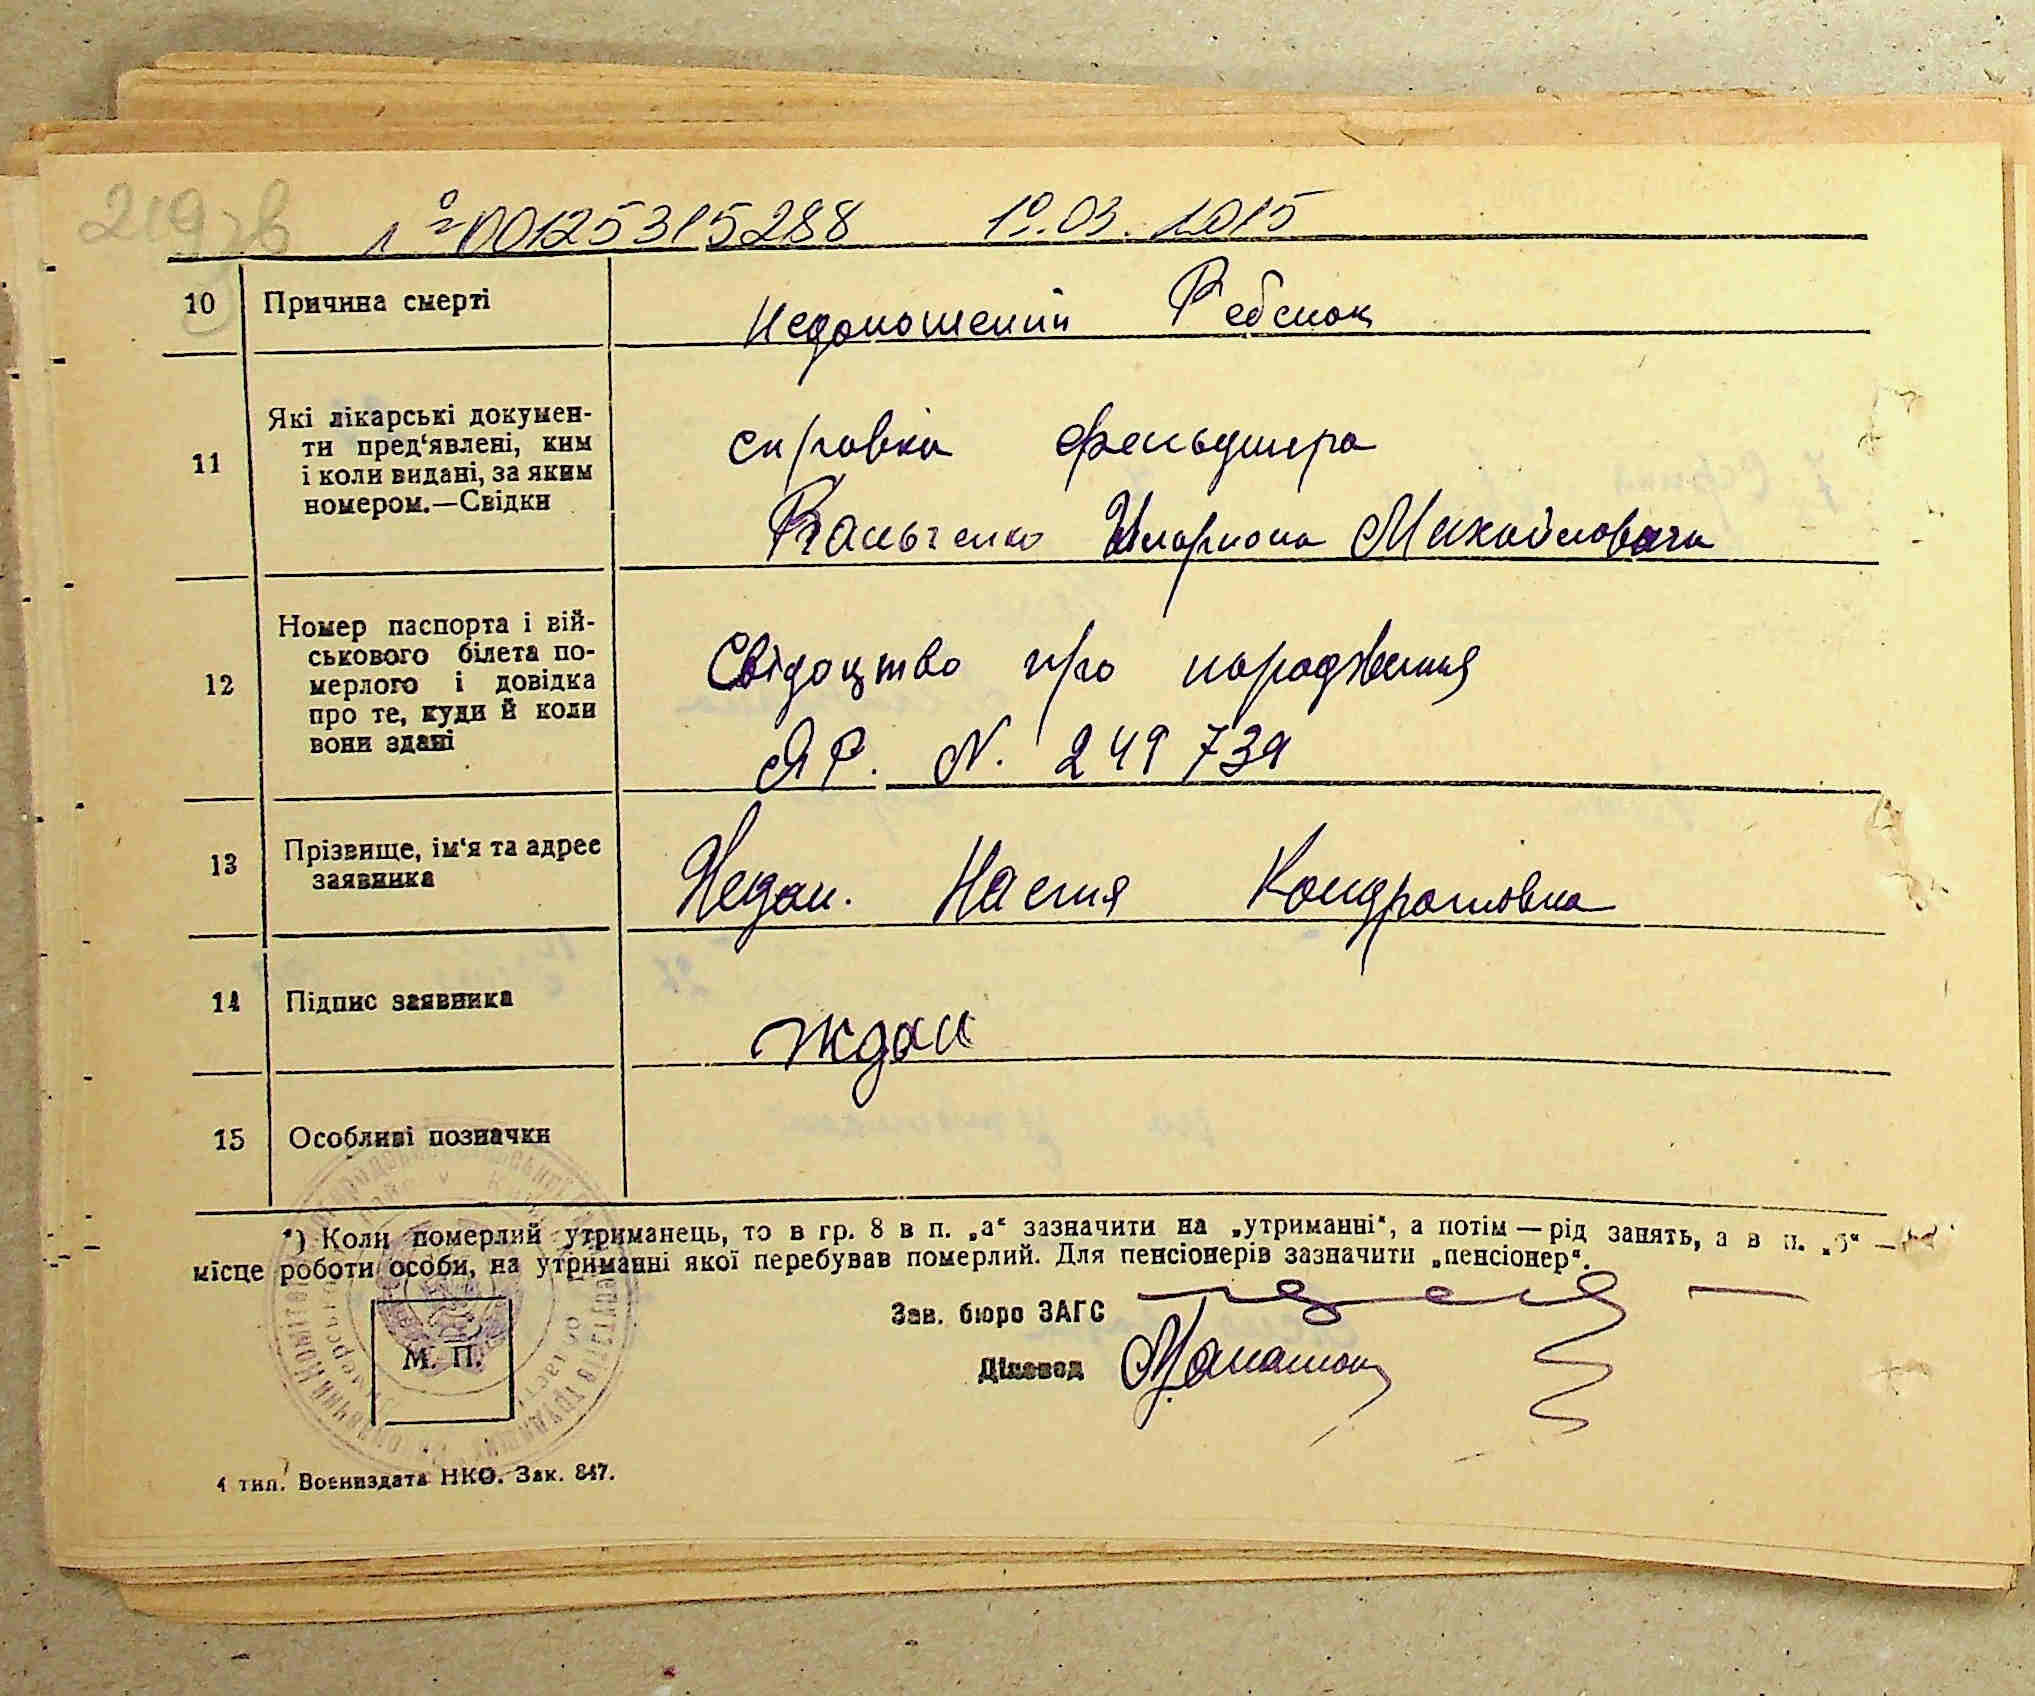 219зв
№ 00125315288 10.03.2015
10 Причина смерті Недоношений Ребенок
11 Які лікарські докумен-
ти пред‘явлені, ким
і коли видані, за яким
номером.—Свідки
справка фельдшера
Илариона Михайловича
12 Номер паспорта і вій-
ськового білета по-
мерлого і довідка
про те, куди й коли
вони здані
Свідоцтво про народження
ЯР. N. 249739
13 Прізвище, ім‘я та адрес
заявника
Настя Кондратовна
14 Підпис заявника Ждан
15 Особливі позначки
*) Коли померлий утриманець, то в гр. 8 в п. „а“ зазначити на „утриманні“, а потім — рід занять, а в п. „б“ —
місце роботи особи, на утриманні якої перебував померлий. Для пенсіонерів зазначити „пенсіонер“.
Зав. бюро ЗАГС
Діловод
М. П.
4 тип. Воениздата НКО. Зак. 847.